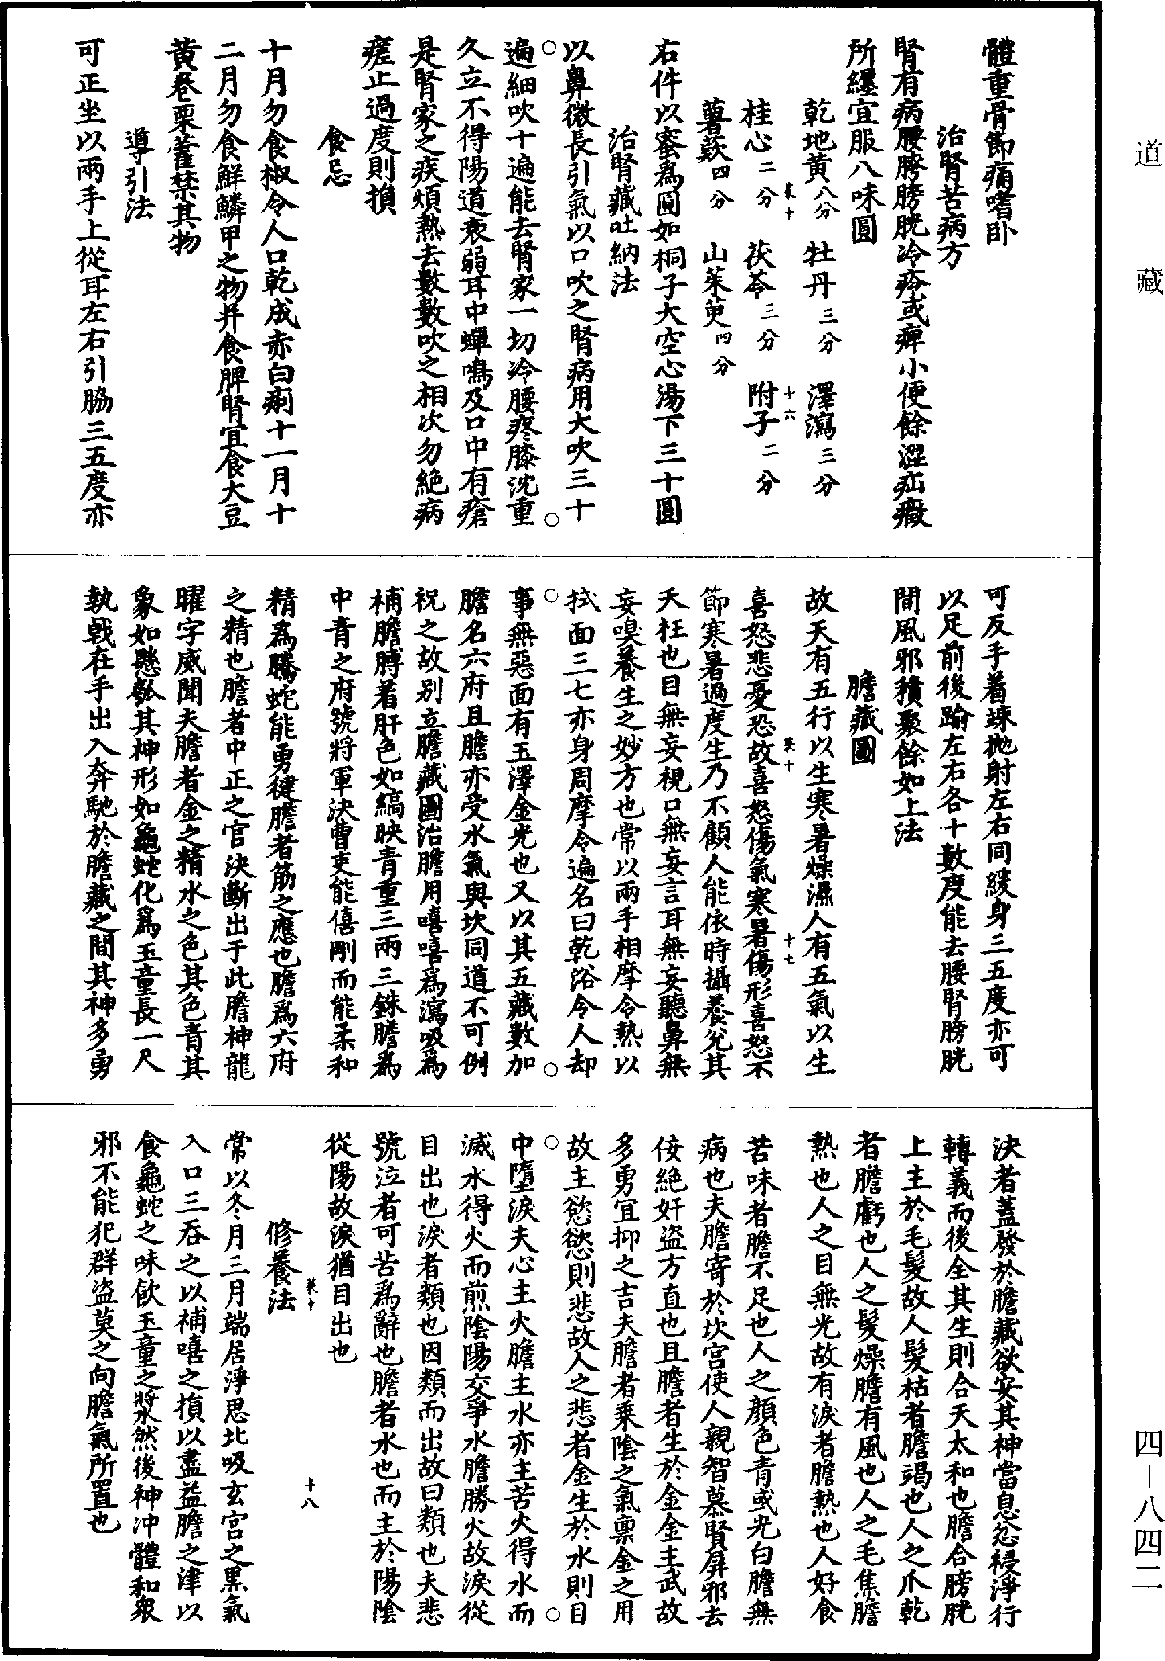 道藏
四—八四二
體重骨節痛嗜卧
治腎苦病方
腎有病腰胯膀胱冷疼或痺小便餘澀疝瘕
所纏宜服八味圓
乾地黃八分 牡丹三分 澤瀉三分
桂心二分 茯苓三分 附子二分
薯蕷四分 山茱萸四分
右件以蜜爲圓如桐子大空心湯下三十圓
治腎藏吐納法
以鼻微長引氣以口吹之腎病用大吹三十
遍細吹十遍能去腎家一切冷腰疼膝沈重
久立不得陽道衰弱耳中蟬鳴及口中有瘡
是腎家之疾煩熱去數數吹之相次勿絕病
瘥止過度則損
食忌
十月勿食椒令人口乾成赤白痢十一月十
二月勿食鮮鱗甲之物并食脾腎宜食大豆
黃卷栗藿禁其物
導引法
可正坐以兩手上從耳左右引脇三五度亦
可反手着竦抛射左右同緩身三五度亦可
以足前後踰左右各十數度能去腰腎膀胱
間風邪積聚餘如上法
膽藏圖
故天有五行以生寒暑燥濕人有五氣以生
喜怒悲憂恐故喜怒傷氣寒暑傷形喜怒不
節寒暑過度生乃不顧人能依時攝養免其
夭枉也目無妄視口無妄言耳無妄聽鼻無
妄嗅養生之妙方也常以兩手相摩令熱以
拭面三七亦身周摩令遍名曰乾浴令人却
事無惡面有五澤金光也又以其五藏數加
膽名六府且膽亦受水氣與坎同道不可例
祝之故别立膽藏圖治膽用嘻嘻爲瀉吸爲
補膽膊着肝色如縞映青重三兩三銖膽爲
中青之府號將軍決曹吏能僖剛而能柔和
精爲騰蛇能勇健膽者筋之應也膽爲六府
之精也膽者中正之官決斷出于此膽神龍
曜字威聞夫膽者金之精水之色其色青其
象如懸瓠其神形如龜蛇化爲玉童長一尺
執戟在手出入奔馳於膽藏之間其神多勇
決者蓋發於膽藏欲安其神當息忿稷淨行
轉義而後全其生則合天太和也膽合膀胱
上主於毛髮故人髮枯者膽竭也人之爪乾
者膽虧也人之髮燥膽有風也人之毛焦膽
熱也人之目無光故有淚者膽熱也人好食
苦味者膽不足也人之顏色青或光白膽無
病也夫膽寄於坎宮使人親智慕賢屏邪去
佞絕奸盜方直也且膽者生於金金主武故
多勇宜抑之吉夫膽者乗陰之氣禀金之用
故主慾慾則悲故人之悲者金生於水則目
中墮淚夫心主火膽主水亦主苦火得水而
滅水得火而煎陰陽交爭水膽勝火故淚從
目出也淚者類也因類而出故曰類也夫悲
號泣者可苦爲辭也膽者水也而主於陽陰
從陽故淚猶目出也
修養法
常以冬月三月端居淨思北吸玄宮之黑氣
入口三吞之以補嘻之損以盡益膽之津以
食龜蛇之味飲玉童之漿然後神冲體和衆
邪不能犯群盜莫之向膽氣所置也